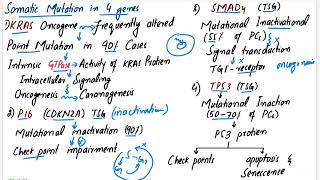 Somatic Mutation in 4 genes
1) KRAS Oncogene → Frequently altered
Point Mutation in 90% Cases
Intrinsic GTPase → Activity of KRAS Protein
Intracellular Signaling
Oncogenesis ← Carcinogenesis
2) P16 (CDKN2A) TSG (inactivation)
Mutational inactivation (90%)
Check point impairment
S
G2
3) SMAD4 (TSG)
Mutational Inactivational
(55% of PCs)
Signal transduction
TGF-receptor
oncogenesis
4) TP53 (TSG)
Mutational Inaction
(50-70% of PCs)
P53 protien
Check points
apoptosis &
Senescence